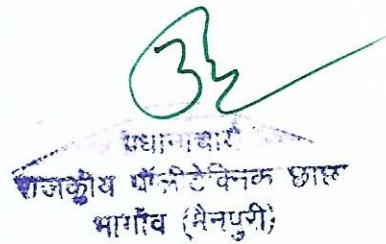 प्रधानाचार्य
राजकीय पॉलीटेक्निक छाछा
भागॉव (मैनपुरी)